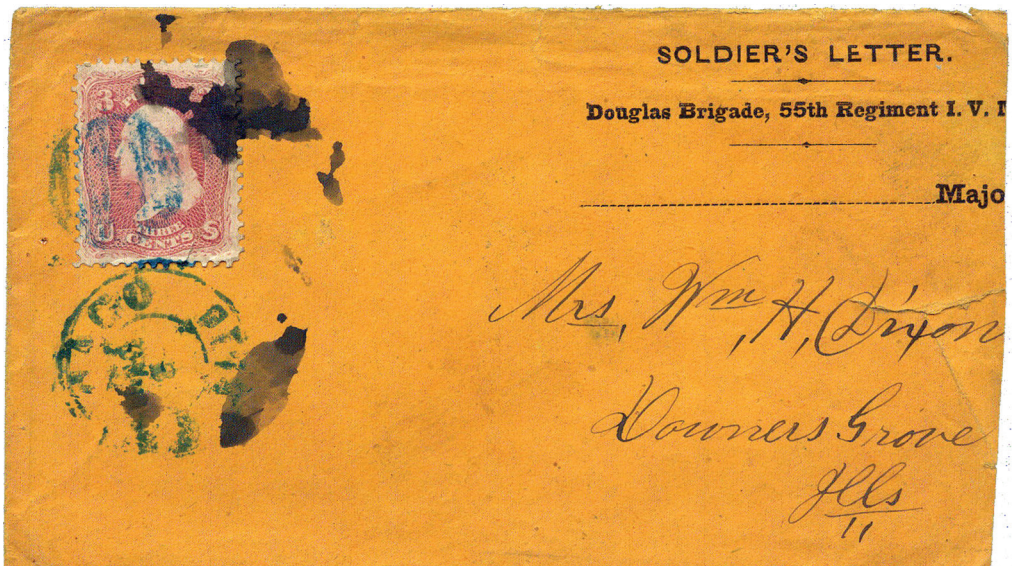 SOLDIER'S LETTER.
Douglas Brigade, 55th Regiment I. V.
Majo
3
THREE
U CENTS S
Mrs, Wm H, Dixon
Downers Grove
Ills